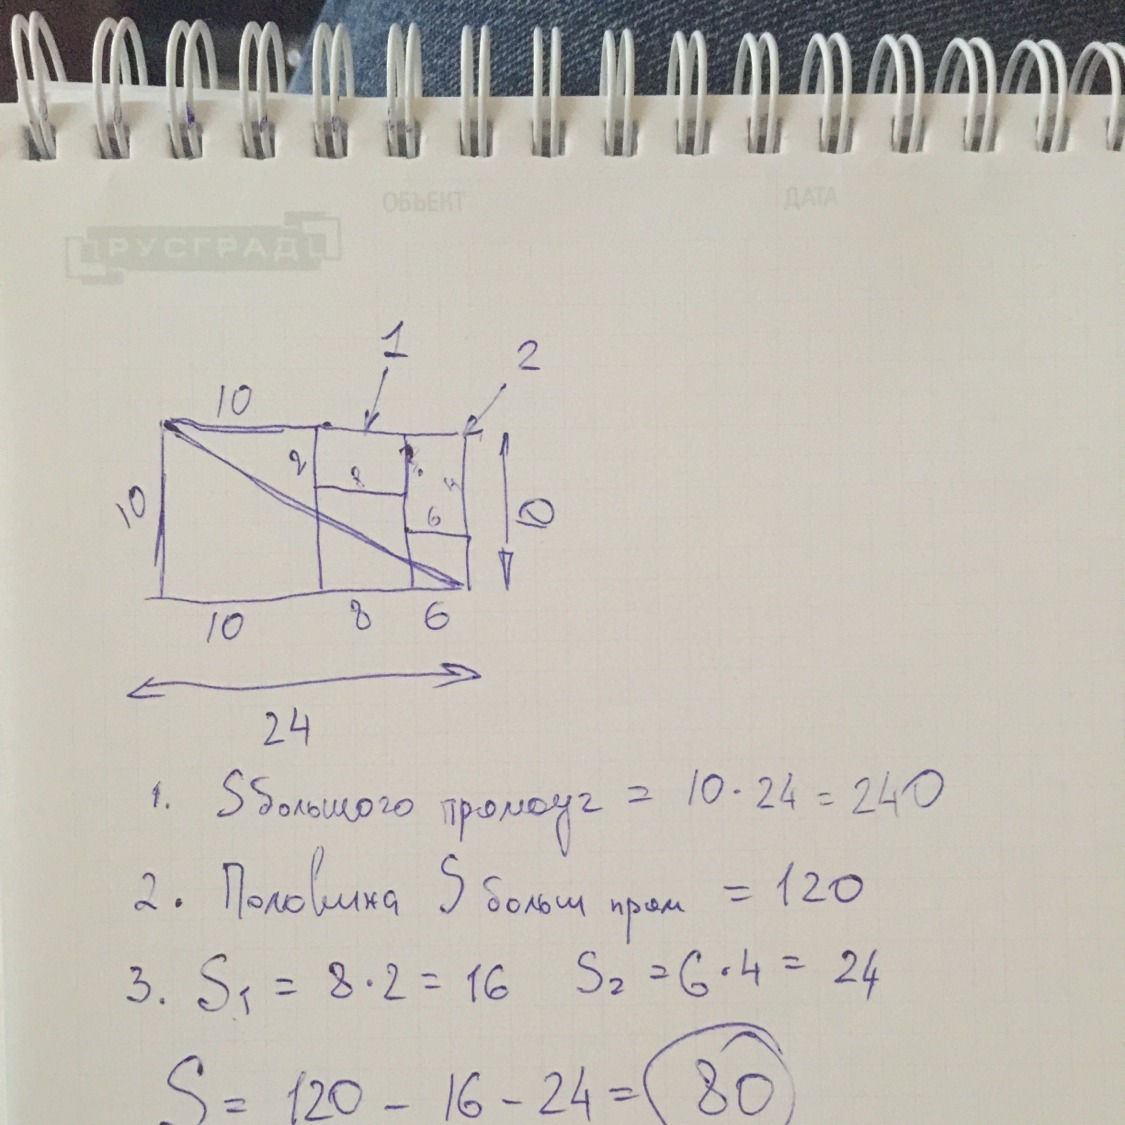 ОБЪЕКТ ДАТА
РУСГРАД
1 2
10
2 8 4
10 6 10
10 8 6
24
1. S большого прямоуг = 10 · 24 = 240
2. Половина S больш прям = 120
3. S₁ = 8 · 2 = 16 S₂ = 6 · 4 = 24
S = 120 - 16 - 24 = 80